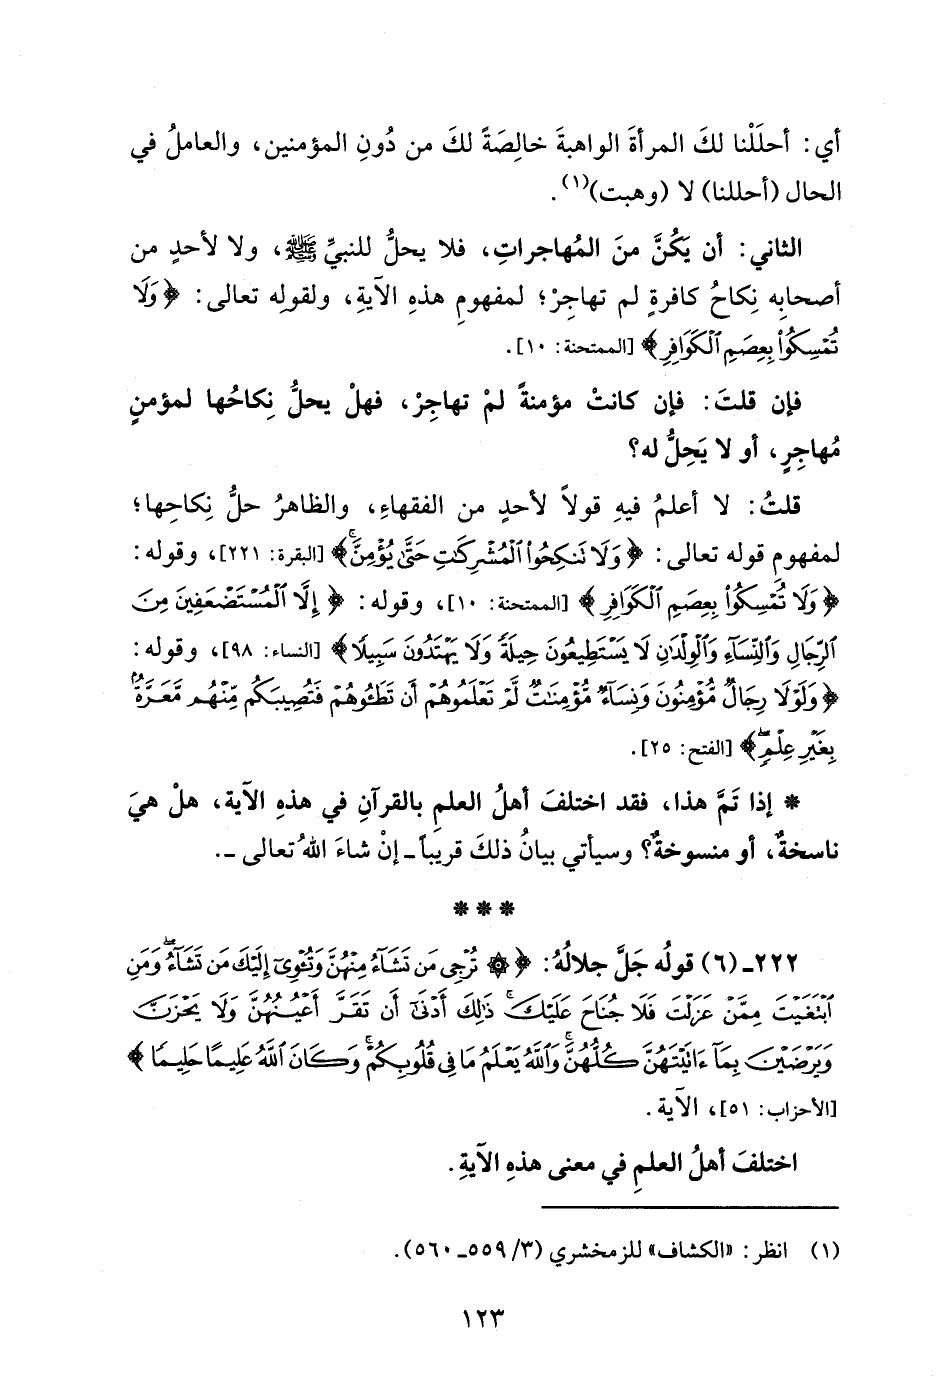 أي: أحلَلْنا لكَ المرأةَ الواهبةَ خالِصَةً لكَ من دُونِ المؤمنين، والعاملُ في
الحال (أحللنا) لا (وهبت)(١).
الثاني: أن يَكُنَّ منَ المُهاجراتِ، فلا يحلُّ للنبيِّ ﷺ، ولا لأحدٍ من
أصحابِه نِكاحُ كافرةٍ لم تهاجِرْ؛ لمفهومِ هذهِ الآيةِ، ولقولِه تعالى: ﴿وَلَا
تُمْسِكُوا۟ بِعِصَمِ ٱلْكَوَافِرِ﴾ [الممتحنة: ١٠].
فإن قلتَ: فإن كانتْ مؤمنةً لمْ تهاجِرْ، فهلْ يحلُّ نِكاحُها لمؤمنٍ
مُهاجِرٍ، أو لا يَحِلُّ له؟
قلتُ: لا أعلمُ فيهِ قولاً لأحدٍ من الفقهاءِ، والظاهرُ حلُّ نِكاحِها؛
لمفهومِ قوله تعالى: ﴿وَلَا تَنكِحُوا۟ ٱلْمُشْرِكَٰتِ حَتَّىٰ يُؤْمِنَّ ۚ﴾ [البقرة: ٢٢١]، وقوله:
﴿وَلَا تُمْسِكُوا۟ بِعِصَمِ ٱلْكَوَافِرِ﴾ [الممتحنة: ١٠]، وقوله: ﴿إِلَّا ٱلْمُسْتَضْعَفِينَ مِنَ
ٱلرِّجَالِ وَٱلنِّسَآءِ وَٱلْوِلْدَٰنِ لَا يَسْتَطِيعُونَ حِيلَةً وَلَا يَهْتَدُونَ سَبِيلًا﴾ [النساء: ٩٨]، وقوله:
﴿وَلَوْلَا رِجَالٌ مُّؤْمِنُونَ وَنِسَآءٌ مُّؤْمِنَٰتٌ لَّمْ تَعْلَمُوهُمْ أَن تَطَـُٔوهُمْ فَتُصِيبَكُم مِّنْهُم مَّعَرَّةٌۢ
بِغَيْرِ عِلْمٍ ۖ﴾ [الفتح: ٢٥].
* إذا تَمَّ هذا، فقد اختلفَ أهلُ العلمِ بالقرآنِ في هذهِ الآية، هلْ هيَ
ناسخةٌ، أو منسوخةٌ؟ وسيأتي بيانُ ذلكَ قريباً ـ إنْ شاءَ اللهُ تعالى ـ.
* * *
٢٢٢ـ (٦) قولُه جَلَّ جلالُهُ: ﴿۞ تُرْجِى مَن تَشَآءُ مِنْهُنَّ وَتُـْٔوِىٓ إِلَيْكَ مَن تَشَآءُ ۖ وَمَنِ
ٱبْتَغَيْتَ مِمَّنْ عَزَلْتَ فَلَا جُنَاحَ عَلَيْكَ ۚ ذَٰلِكَ أَدْنَىٰٓ أَن تَقَرَّ أَعْيُنُهُنَّ وَلَا يَحْزَنَّ
وَيَرْضَيْنَ بِمَآ ءَاتَيْتَهُنَّ كُلُّهُنَّ ۚ وَٱللَّهُ يَعْلَمُ مَا فِى قُلُوبِكُمْ ۚ وَكَانَ ٱللَّهُ عَلِيمًا حَلِيمًا﴾
[الأحزاب: ٥١]، الآية.
اختلفَ أهلُ العلمِ في معنى هذهِ الآيةِ.
(١) انظر: «الكشاف» للزمخشري (٣/ ٥٥٩ـ ٥٦٠).
١٢٣